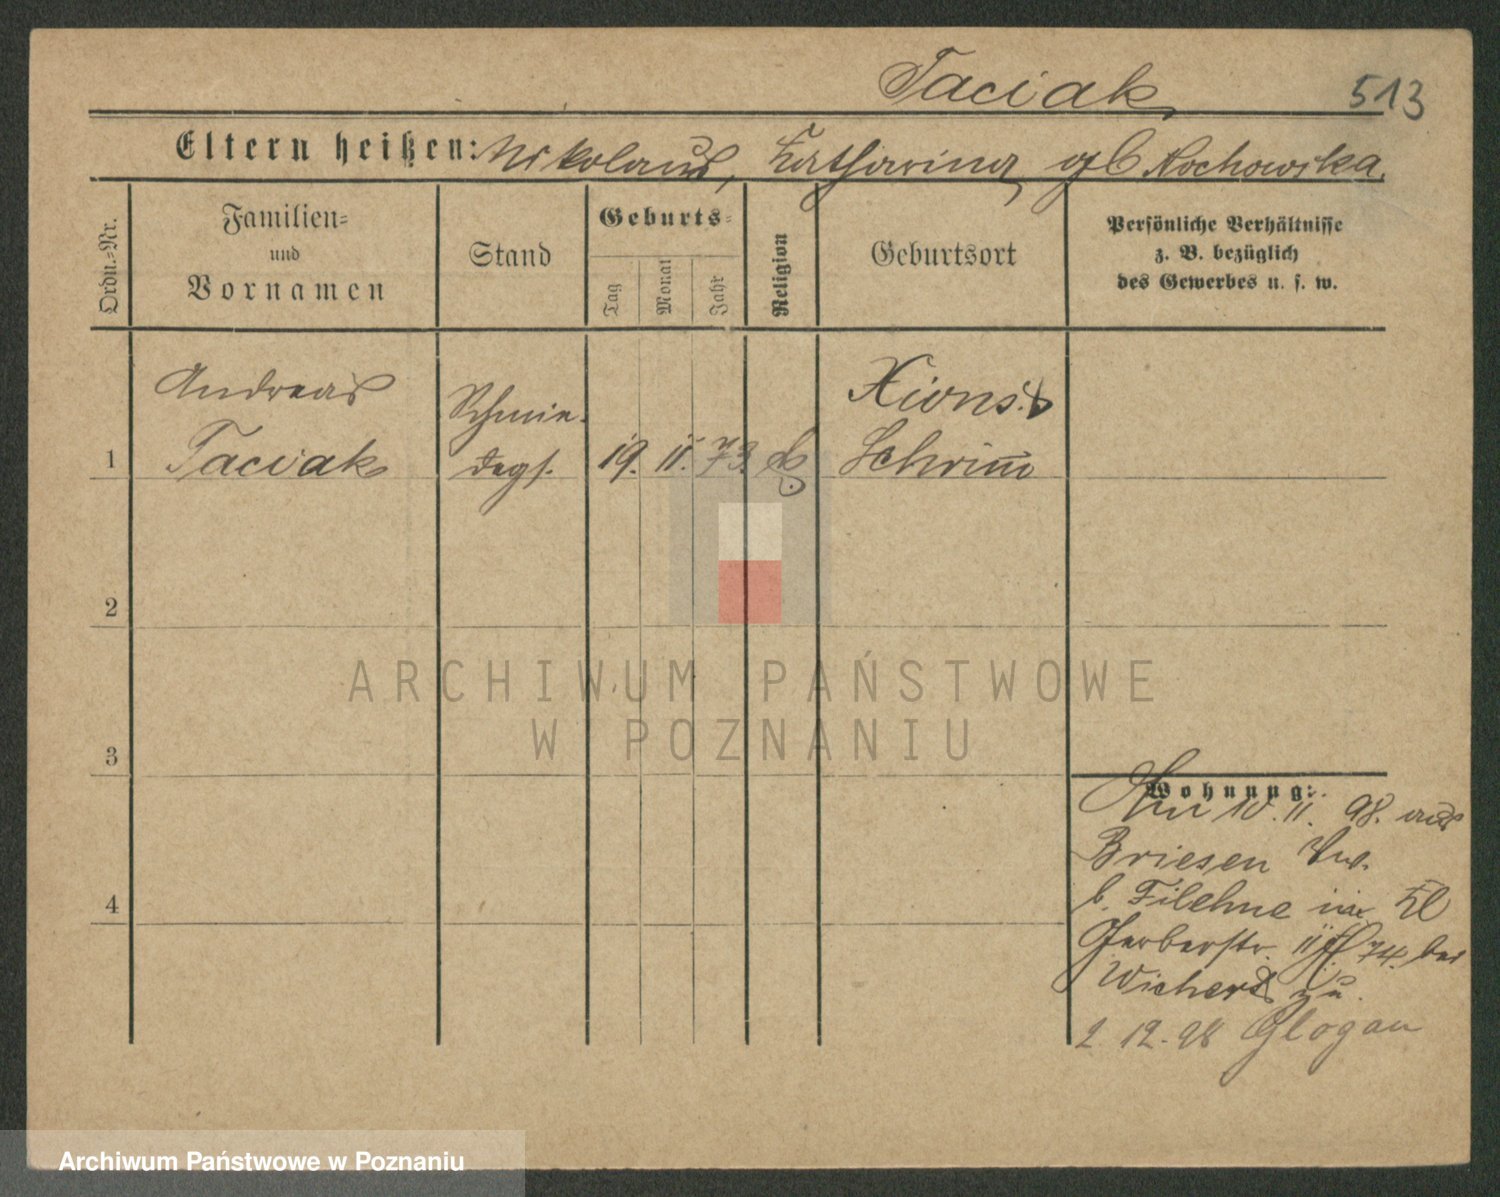 Taciak 513
Eltern heißen: Nikolaus, Katharina gb Nochowska.
Ordn.=Nr.
Familien=
und
Vornamen
Stand
Geburts=
Tag
Monat
Jahr
Religion
Geburtsort
Persönliche Verhältnisse
z. B. bezüglich
des Gewerbes u. s. w.
Andreas
Taciak
Schmie-
degs.
1
19. 11. 73.
Xions
Schrimm
2
3
4
Wohnung:
10. 11. 98. aus
Briesen
b. Filehne in Kl
Gerberstr. 74. bei
Wichert zu.
2 12. 98 Glogau
ARCHIWUM PAŃSTWOWE
W POZNANIU
Archiwum Państwowe w Poznaniu